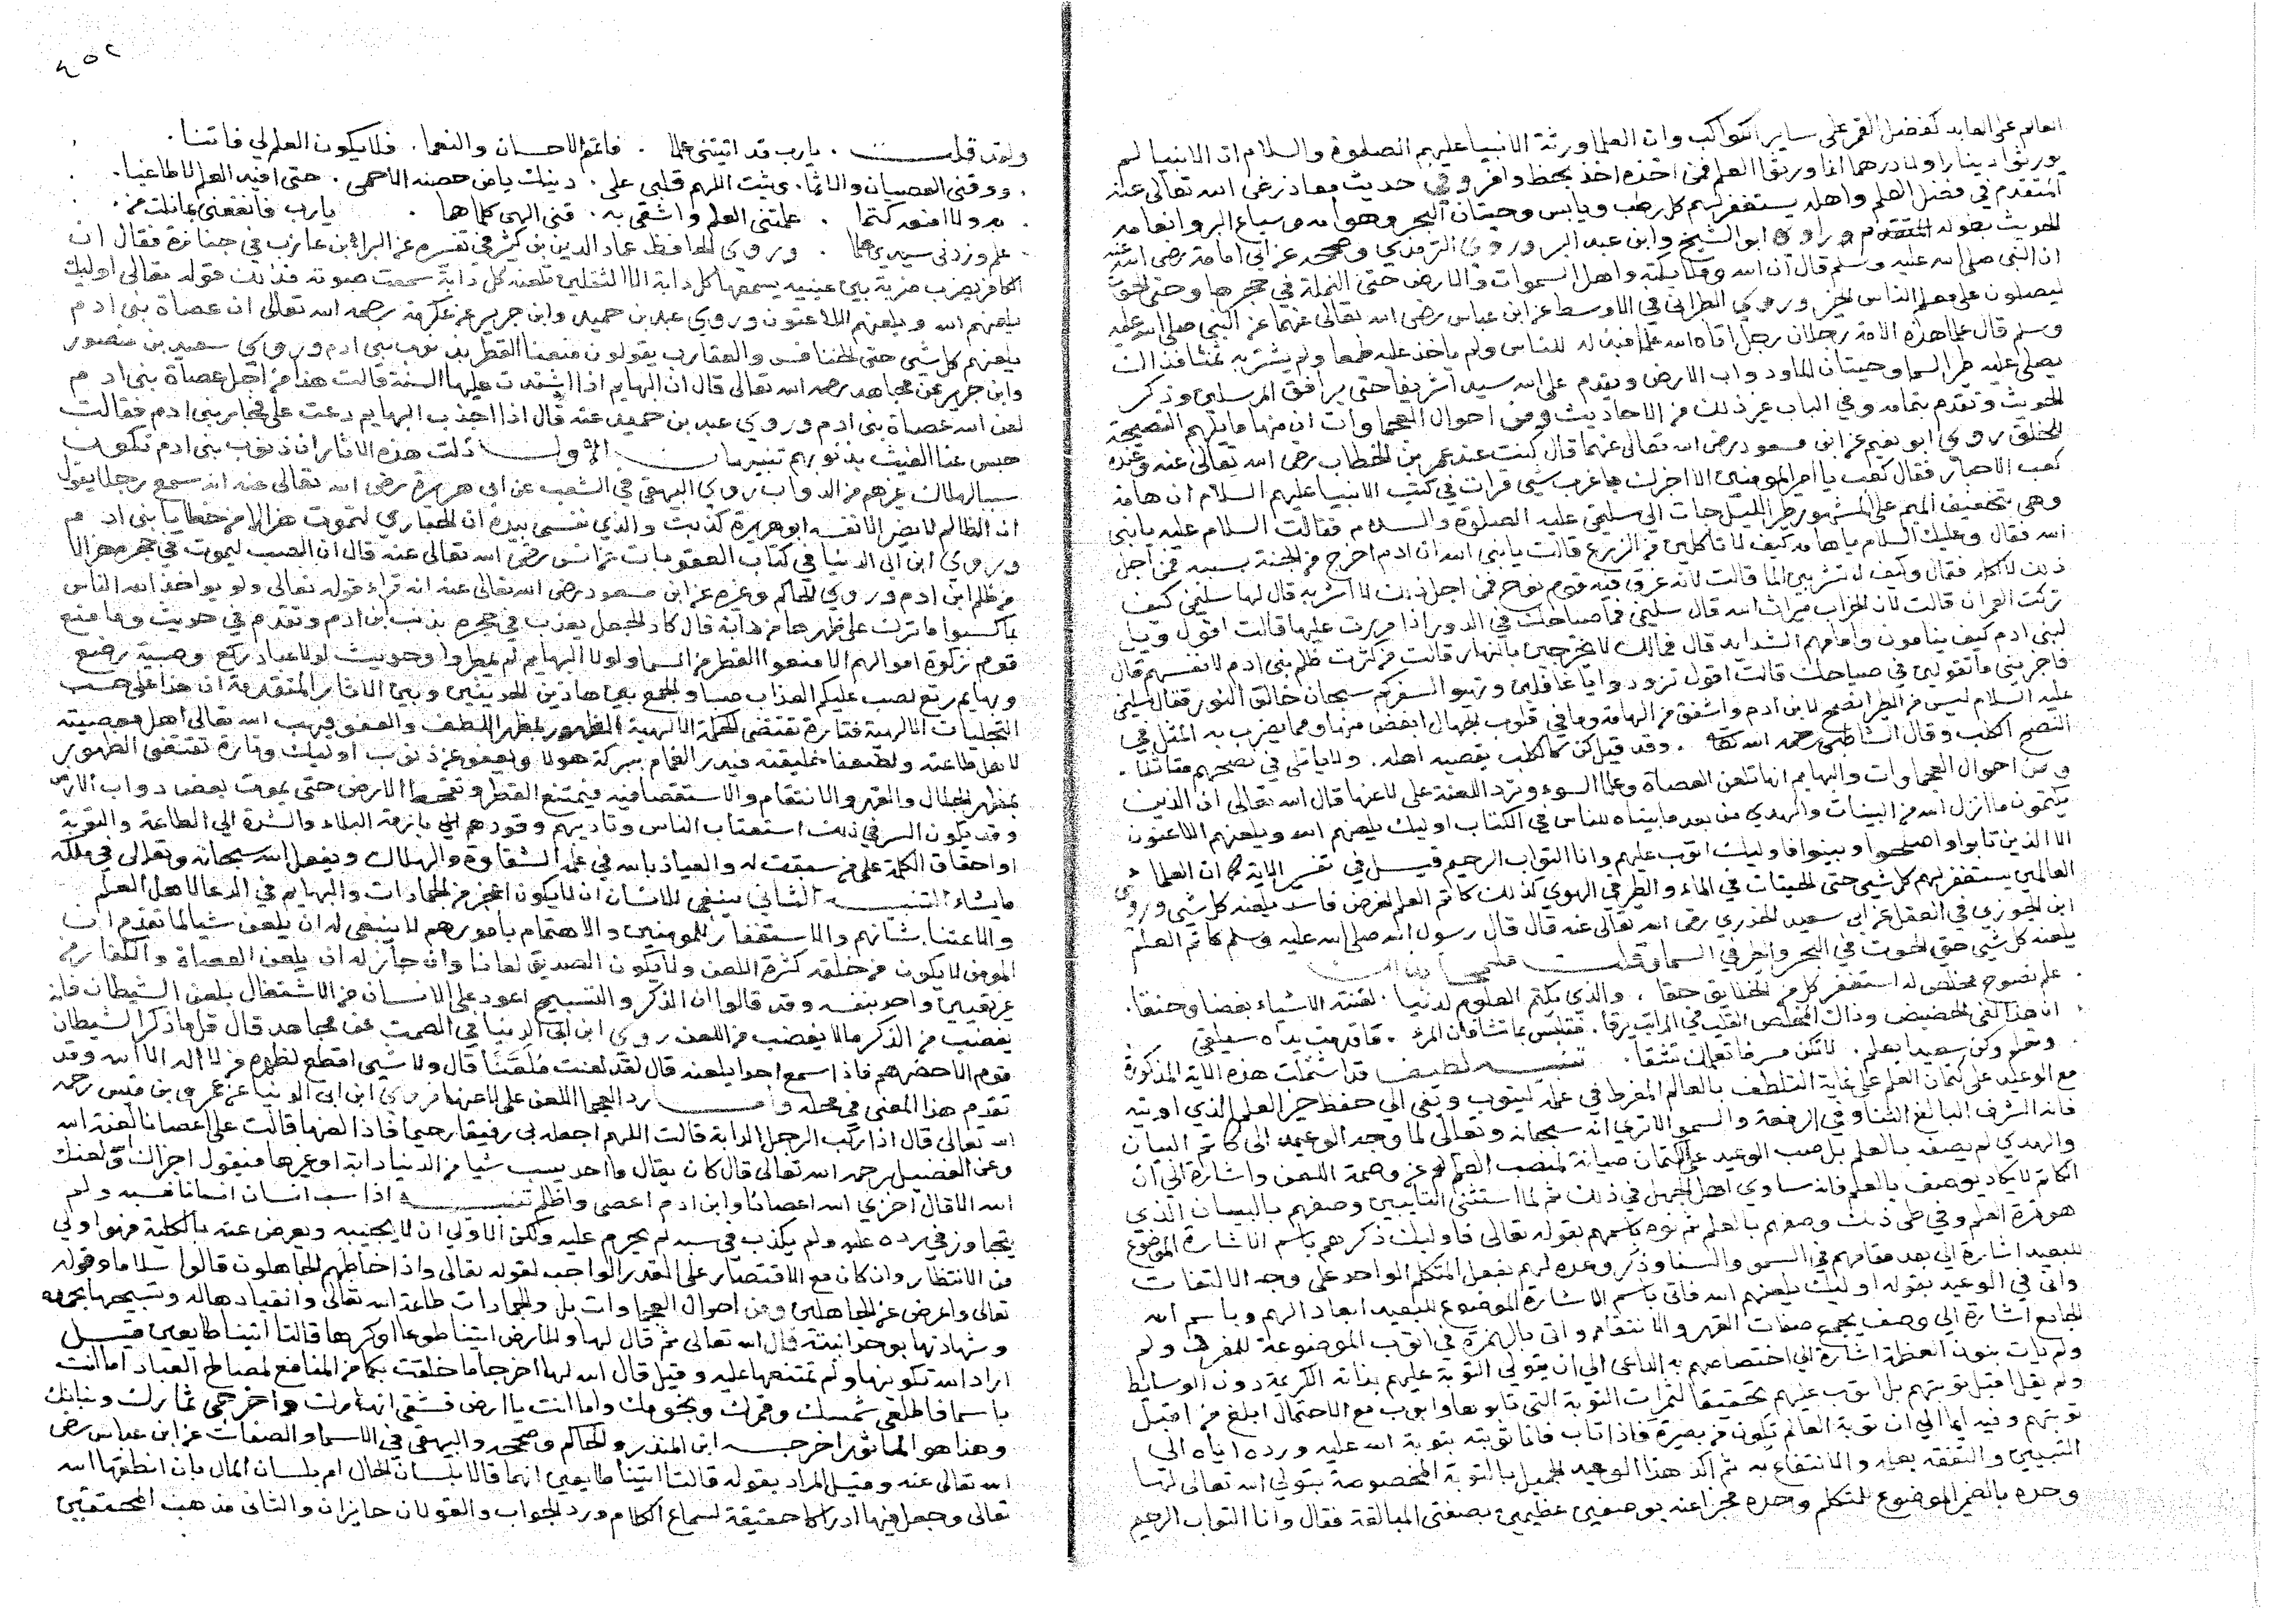 العالم على العابد كفضل القمر على ساير الكواكب وان العلما ورثة الانبيا عليهم الصلوة والسلام ان الانبيا لم
يورثوا دينارا ولا درهما انما ورثوا العلم فمن اخذه اخذ بحظ وافر وفي حديث معاذ رضي الله تعالى عنه
المتقدم في فضل العلم واهله يستغفر لهم كل رطب ويابس وحيتان البحر وهوامه وسباع البر وانعامه
الحديث بطوله المتقدم ورواه ابو الشيخ وابن عبد البر وروي الترمذي وصححه عن ابي امامة رضي الله عنه
ان النبي صلى الله عليه وسلم قال ان الله وملايكته واهل السموات والارض حتى النملة في حجرها وحتى الحوت
ليصلون على معلم الناس الخير وروي الطبراني في الاوسط عن ابن عباس رضي الله تعالى عنهما عن النبي صلى الله عليه
وسلم قال علما هذه الامة رجلان رجل اتاه الله علما فبذله للناس ولم ياخذ عليه طمعا ولم يشتر به ثمنا فذلك
يصلي عليه طير السما وحيتان الما ودواب الارض ويقدم على الله سيدا شريفا حتى يرافق المرسلين وذكر
الحديث وتقدم بتمامه وفي الباب غير ذلك من الاحاديث ومن احوال العجماوات ان منها ما يلهم النصيحة
للخلق روي ابو نعيم عن ابن مسعود رضي الله تعالى عنهما قال كنت عند عمر بن الخطاب رضي الله تعالى عنه وعنده
كعب الاحبار فقال كعب يا امير المومنين الا اخبرك باغرب شي قرات في كتب الانبيا عليهم السلام ان هامة
وهي بتخفيف الميم على المشهور طير الليل جات الى سليمن عليه الصلوة والسلام فقالت السلام عليه يا نبي
الله فقال وعليك السلام يا هامه كيف لا تاكلين من الزرع قالت يا نبي الله ان ادم اخرج من الجنة بسببه فمن اجل
ذلك لا اكله فقال وكيف لا تشربين الما قالت لانه غرق فيه قوم نوح فمن اجل ذلك لا اشربه قال لها سليمن كيف
تركت العمران قالت لان الخراب ميراث الله قال سليمن فما صياحك في الدور اذا مررت عليها قالت اقول ويل
لبني ادم كيف ينامون وامامهم الشدايد قال فمالك لا تخرجين بالنهار قالت من كثرت ظلم بني ادم لانفسهم قال
فاخبريني ما تقولين في صياحك قالت اقول تزودوا يا غافلين وتهيوا لسفركم سبحان خالق النور فقال سليمن
عليه السلام ليس من الطير انصح لابن ادم واشفق من الهامة وما في قلوب الجهال ابغض منها ومما يضرب به المثل في
النصح الكلب وقال الشاطبي رحمه الله تعالى . وقد قيل كن كالكلب يقصيه اهله . ولا ياتلي في نصحهم متبذلا .
ومن احوال العجماوات والبهايم انها تلعن العصاة وعلما السوء وترد اللعنة على لاعنها قال الله تعالى ان الذين
يكتمون ما انزل الله من البينات والهدي من بعد ما بيناه للناس في الكتاب اوليك يلعنهم الله ويلعنهم اللاعنون
الا الذين تابوا واصلحوا وبينوا فاوليك اتوب عليهم وانا التواب الرحيم قيل في تفسير الاية كما ان العلما
العالمين يستغفر لهم كل شي حتى الحيتان في الماء والطير في الهوي كذلك كاتم العلم لغرض فاسد يلعنه كل شي وروي
ابن الجوزي في العلل عن ابي سعيد الخدري رضي الله تعالى عنه قال قال رسول الله صلى الله عليه وسلم كاتم العلم
يلعنه كل شي حتى الحوت في البحر والطير في السما وقلت
. علم نصوح مخلص له استغفر كل من الخلايق حقا . والذي يكتم العلوم لدنيا . لعنته الاشياء بغضا وحنقا .
. ان هذا لفي الحضيض وذاك المخلص القلب في المراتب يرقا .
. وتحل وكن سعيدا بعلم . لا تكن مسرفا تنبيه لطيف قد اشتملت هذه الاية المذكورة
مع الوعيد على كتمان العلم على غاية التلطف بالعالم المفرط في عمله ليتوب ويفي الى حفظ خير العلم الذي اوتيه
فانه الشرف البالغ الثنا وفي الرفعة والسمو الا تري انه سبحانه وتعالى لما وجه الوعيد الى كاتم البيان
والهدي لم يصفه بالعلم بل صب الوعيد على الكتمان صيانة لمنصب العلم عن وصمة اللعن واشارة الى ان
الكاتم لا يكاد يوصف بالعلم فانه ساوي اهل الجهل في ذلك ثم لما استثني التايبين وصفهم بالبيان الذي
هو ثمرة العلم وفي طي ذلك وصفهم بالعلم ثم نوه باسمهم بقوله تعالى فاوليك ذكرهم باسم الاشارة الموضوع
للبعيد اشارة الى بعد مقامهم في السمو والسنا وذكر وعده لهم بفعل المتكلم الواحد على وجه الالتفات
واتى في الوعيد بقوله اوليك يلعنهم الله فاتى باسم الاشارة الموضوع للبعيد ابعادا لهم وباسم الله
الجامع اشارة الى وصف يجمع صفات القهر والانتقام واتى بالهمزة في اتوب الموضوعة للمفرد ولم
ولم يات بنون العظمة اشارة الى اختصاصهم به الداعي الى ان يتولي التوبة عليهم بذاته الكريمة دون الوسايط
ولم يقل اقبل توبتهم بل اتوب عليهم تحقيقا لثمرات التوبة التي تابوها واتوب مع الاحتمال ابلغ من اقبل
توبتهم وفيه ايما الى ان توبة العالم تكون من بصيرة فاذا تاب فانما توبته بتوبة الله عليه ورده اياه الى
التبيين والتفقه بعلمه والانتفاع به ثم اكد هذا الوعيد الجميل بالتوبة المخصوصة بتولي الله تعالى لها
وحده بالضمير الموضوع للمتكلم وحده مخبرا عنه بوصفين عظيمين بصفتي المبالغة فقال وانا التواب الرحيم
٤٥٢
ولقد قلت . يارب قد اتيتني علما . فاتمم الاحسان والنعما . فلا يكون العلم لي فاتنا .
. ووقني العصيان والاثما . ثبت اللهم قلبي على . دينك يا من حصنه الاحمى . حتى افيد العلم لا طاغيا .
. به ولا امنعه كتما . علمتني العلم واشقى به . قني الهي كلما هما . يارب فانفعني بما نلت من .
. علم وزدني سيدي علما . وروي الحافظ عماد الدين بن كثير في تفسيره عن البراء بن عازب في جنازة فقال ان
الكافر يضرب ضربة بين عينيه يسمعها كل دابة الا الثقلين تلعنه كل دابة سمعت صوته فذلك قوله تعالى اوليك
يلعنهم الله ويلعنهم اللاعنون وروي عبد بن حميد وابن جرير عن عكرمة رحمه الله تعالى ان عصاة بني ادم
يلعنهم كل شي حتى الخنافس والعقارب يقولون منعنا القطر بذنوب بني ادم وروي سعيد بن منصور
وابن جرير عن مجاهد رحمه الله تعالى قال ان البهايم اذا اشتدت عليها السنة قالت هذا من اجل عصاة بني ادم
لعن الله عصاة بني ادم وروي عبد بن حميد عنه قال اذا اجدب البهايم دعت على فجار بني ادم فقالت
حبس عنا الغيث بذنوبهم تنبيهان الاول دلت هذه الاثار ان ذنوب بني ادم تكون
سببا لهلاك غيرهم من الدواب روي البيهقي في الشعب عن ابي هريرة رضي الله تعالى عنه انه سمع رجلا يقول
ان الظالم لا يضر الا نفسه ابو هريرة كذبت والذي نفسي بيده ان الحباري لتموت هزلا من خطايا بني ادم
وروي ابن ابي الدنيا في كتاب العقوبات عن انس رضي الله تعالى عنه قال ان الضب ليموت في حجره هزالا
من ظلم ابن ادم وروي الحاكم وغيره عن ابن مسعود رضي الله تعالى عنه انه قراء قوله تعالى ولو يواخذ الله الناس
بما كسبوا ما ترك على ظهرها من دابة قال كاد الجعل يعذب في حجره بذنب ابن ادم وتقدم في حديث وما منع
قوم زكوة اموالهم الا منعوا القطر من السما ولولا البهايم لم يمطروا وحديث لولا عباد ركع وصبية رضع
وبهايم رتع لصب عليكم العذاب صبا والجمع بين هاذين الحديثين وبين الاثار المتقدمة ان هذا على حسب
التجليات الالهية فتارة تقتضي الحكمة الالهية الظهور بمظهر اللطف والعفو فيهب الله تعالى اهل معصيته
لاهل طاعته ولطفا بخليقته فيدر الغمام ببركة هولا ويعفو عن ذنوب اوليك وتارة تقتضي الظهور
بمظهر الجلال والقهر والانتقام والاستقصا فيه فيمتنع القطر وتقحط الارض حتى يموت بعض دواب الارض
وقد يكون السر في ذلك استعتاب الناس وتاديبهم وقودهم بازمة البلاء والشدة الى الطاعة والتوبة
او احقاق الكلمة على من سبقت له والعياذ بالله في علمه الشقاوة والهلاك ويفعل الله سبحانه وتعالى في ملكه
ما يشاء التنبيه الثاني ينبغي للانسان ان لا يكون اعجز من الجمادات والبهايم في الدعا لاهل العلم
والاعتنا بشانهم والاستغفار للمومنين والاهتمام بامورهم لا ينبغي له ان يلعن شيا لما تقدم ان
المومن لا يكون من خلقه كثرة اللعن ولا يكون الصديق لعانا وان جاز له ان يلعن العصاة والكفار من
غير تعيين واحد بنفسه وقد قالوا ان الذكر والتسبيح اعود على الانسان من الاشتغال بلعن الشيطان فانه
يغضب من الذكر ما لا يغضب من اللعن روي ابن ابي الدنيا في الصمت عن مجاهد قال قل ما ذكر الشيطان
قوم الا حضرهم فاذا سمع احدا يلعنه قال لقد لعنت ملعنا قال ولا شي اقطع لظهره من لا اله الا الله وقد
تقدم هذا المعنى في محله واما رد العجما اللعن على لاعنها فروي ابن ابي الدنيا عن عمرو بن قيس رحمه
الله تعالى قال اذا ركب الرجل الدابة قالت اللهم اجعله بي رفيقا رحيما فاذا لعنها قالت على اعصانا لعنة الله
وعن الفضيل رحمه الله تعالى قال كان يقال ما احد يسب شيا من الدنيا دابة او غيرها فيقول اخزاك ولعنك
الله الا قال اخزي الله اعصانا وابن ادم اعصى واظلم تنبيه اذا سب انسان انسانا فسبه ولم
يتجاوز في رده عليه ولم يكذب في سبه لم يحرم عليه ولكن الاولي ان لا يجيبه ويعرض عنه بالكلية فهو اولي
من الانتظار وان كان مع الاقتصار على القدر الواجب لقوله تعالى واذا خاطبهم الجاهلون قالوا سلاما وقوله
تعالى واعرض عن الجاهلين ومن احوال العجماوات بل والجمادات طاعة الله تعالى وانقيادها له وتسبيحها بحمده
وشهادتها بوحدانيته قال الله تعالى ثم قال لها وللارض ايتيا طوعا او كرها قالتا اتينا طايعين قيل
اراد الله تكوينها ولم تمتنعها عليه وقيل قال الله لهما اخرجا ما خلقت بكما من المنافع لمصالح العباد اما انت
يا سما فاطلعي شمسك وقمرك ونجومك واما انت يا ارض فشقي انهارك واخرجي ثمارك ونباتك
وهذا هو الماثور اخرجه ابن المنذر والحاكم وصححه والبيهقي في الاسما والصفات عن ابن عباس رضي
الله تعالى عنه وقيل المراد بقوله قالتا اتينا طايعين انهما قالا بلسان الحال ام بلسان المال بان انطقها الله
تعالى وجعل فيها ادراكا حقيقة لسماع الكلام ورد الجواب والقولان جايزان والثاني مذهب المحققين